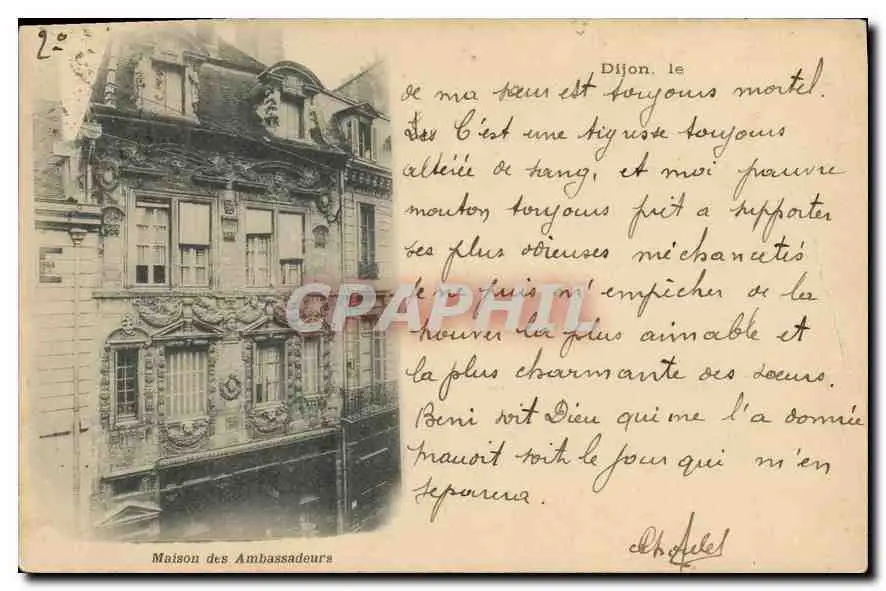 2°
Dijon, le
de ma sœur est toujours mortel.
C'est une tigresse toujours
altérée de sang, et moi pauvre
mouton toujours prêt a supporter
ses plus odieuses méchancetés
Je ne puis m'empêcher de la
trouver la plus aimable et
la plus charmante des sœurs.
Beni soit Dieu qui me l'a donnée
mauoit soit le jour qui m'en
separera.
CPAPHIL
E
Maison des Ambassadeurs